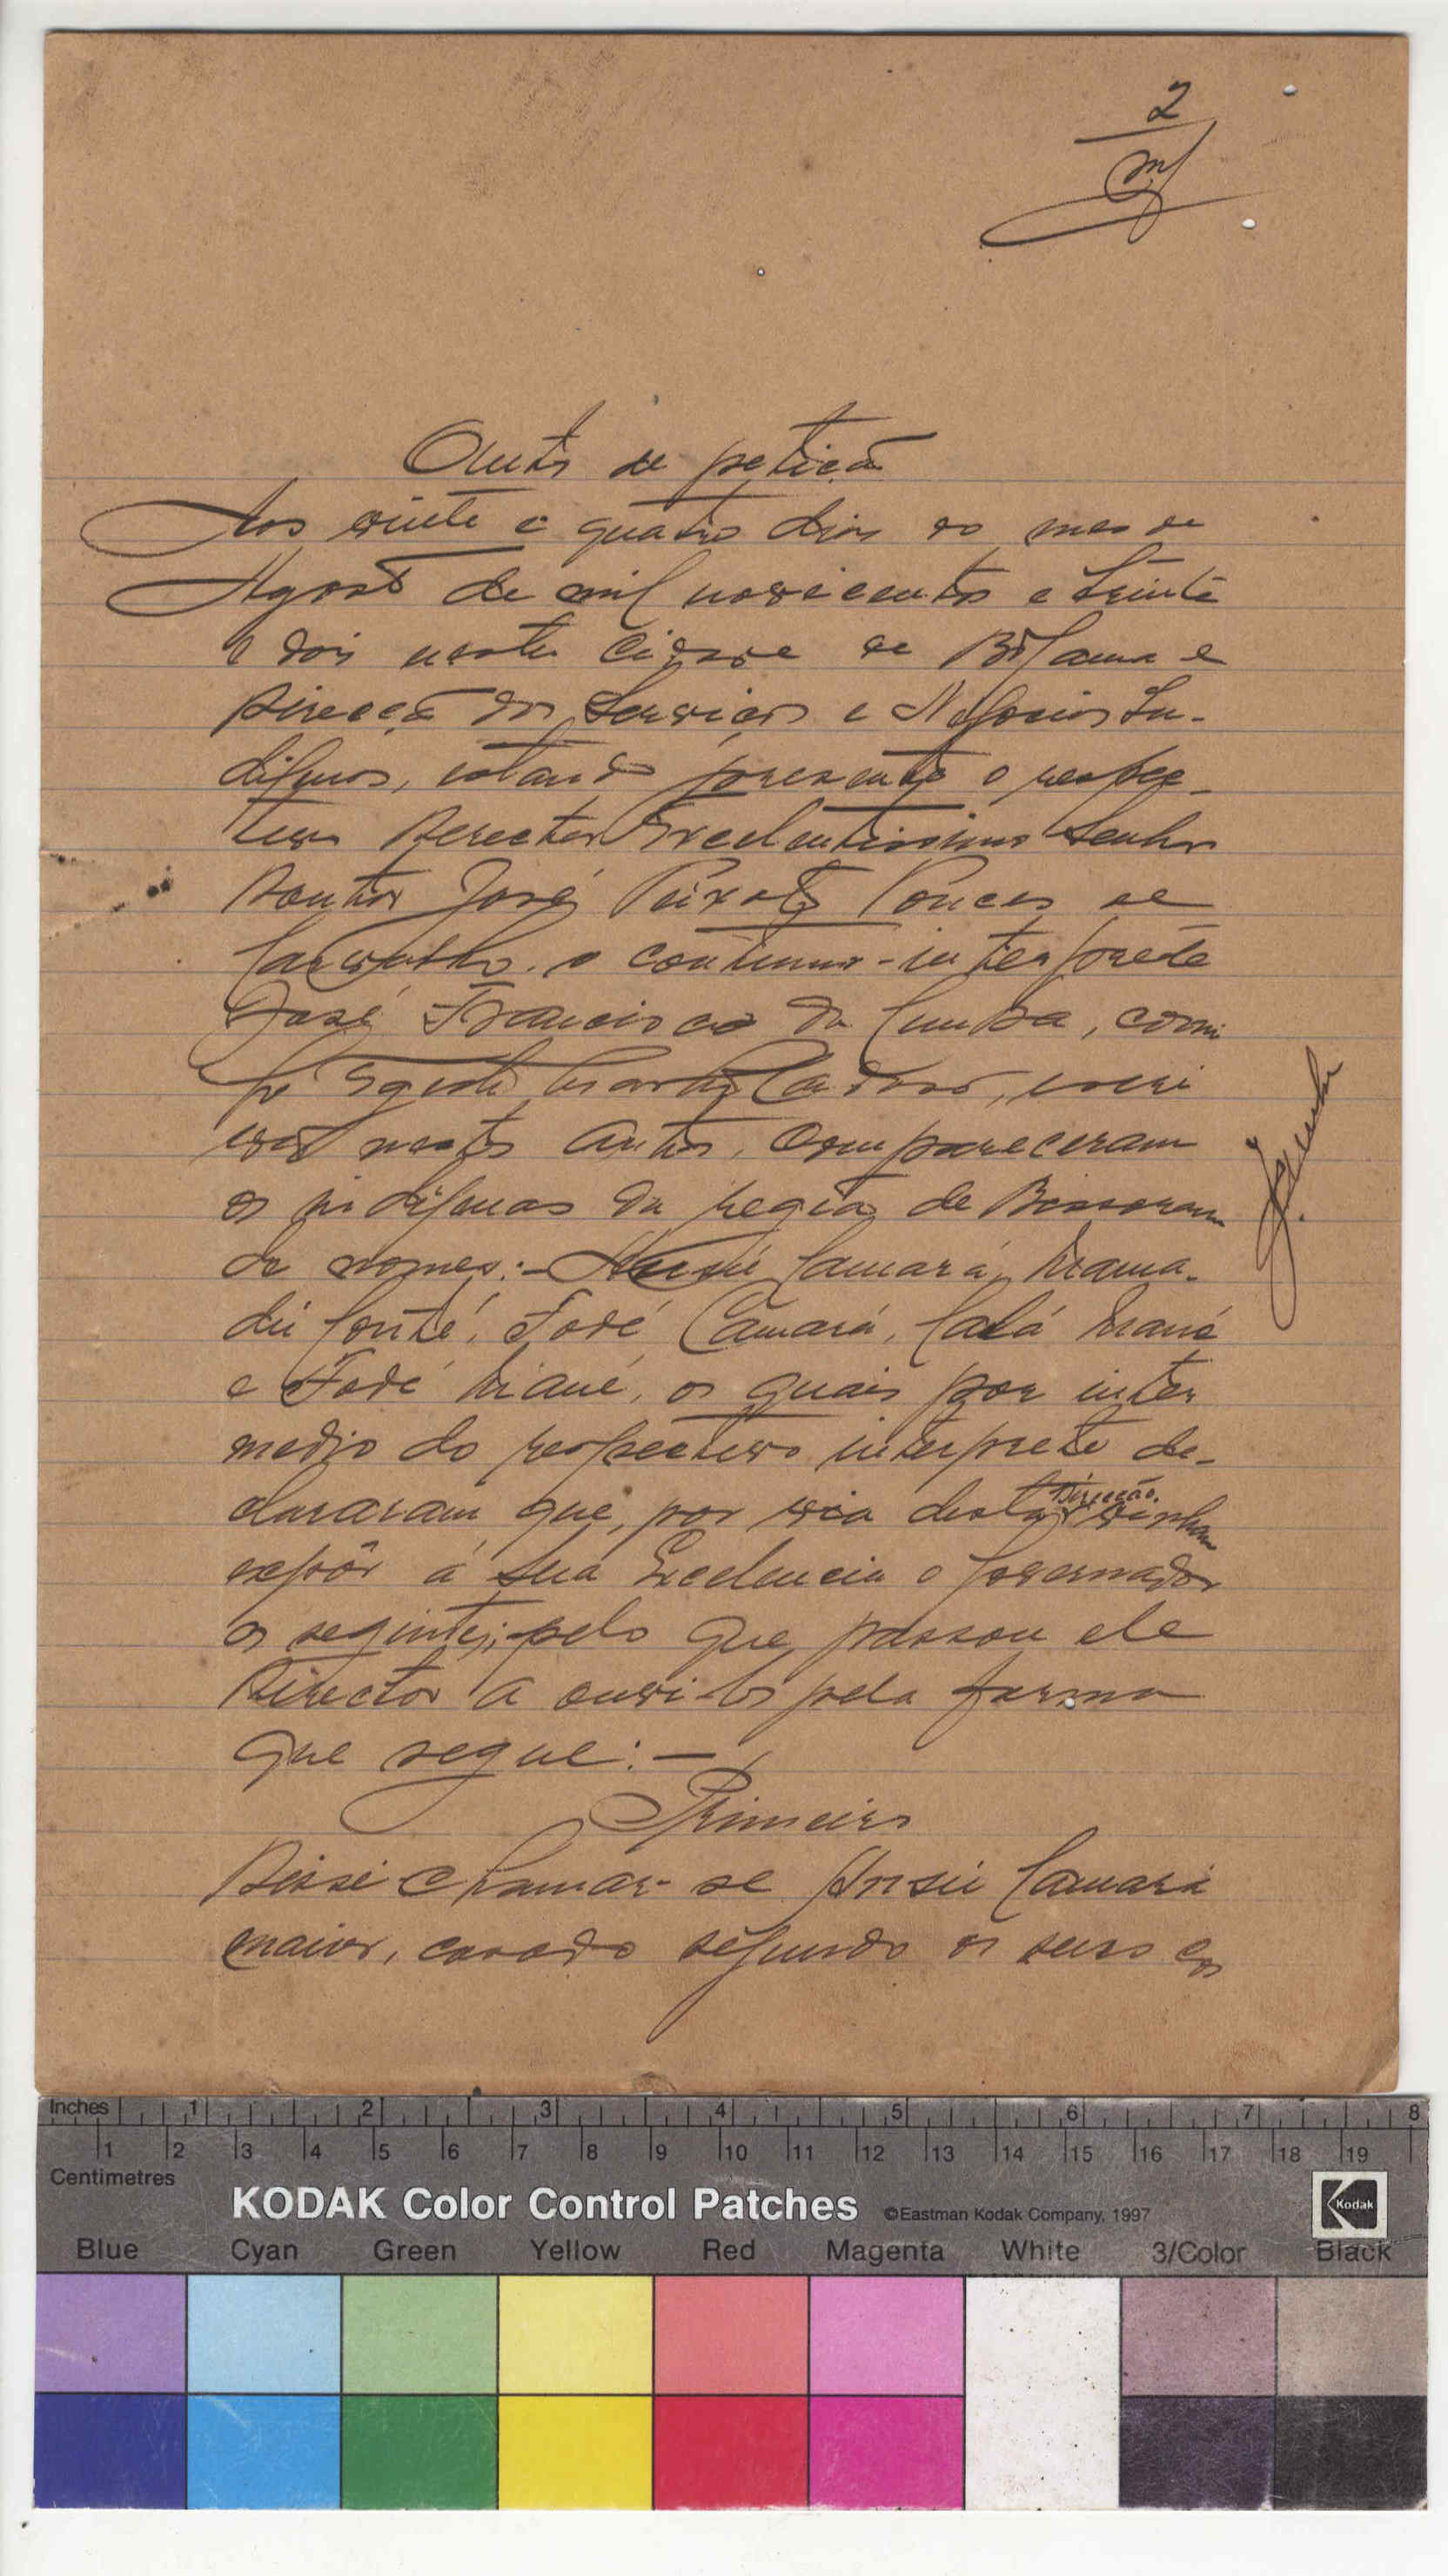 2
Auto de petição
Aos vinte e quatro dias do mes de
Agosto de mil novecentos e trinta
e dois nesta cidade de Bolama e
Direcção dos Serviços e Negocios In-
digenas, estando presente o respec-
tivo Director Excelentissimo Senhor
Doutor José Peixoto Ponces de
Carvalho, o continuo-interprete
José Francisco da Cunha, comi
go Cardoso, escri
vão nestes autos, compareceram
os indigenas da região de Bissoram
de nomes:- Camará, Mama-
dú Conté, Fodé Camará, Calá Mané
e Fodé Mané, os quais por inter
medio do respectivo interprete de-
clararam que, por via desta Direcção, vinham
expôr á Sua Excelencia o Governador
o seguinte; pelo que passou ele
Director a ouvi-los pela forma
que segue:-
Primeiro
Disse chamar-se Ansú Camará
maior, casado segundo os seus cos
JCunha
Inches 1 2 3 4 5 6 7 8
1 2 3 4 5 6 7 8 9 10 11 12 13 14 15 16 17 18 19
Centimetres
KODAK Color Control Patches ©Eastman Kodak Company, 1997
Kodak
Blue Cyan Green Yellow Red Magenta White 3/Color Black